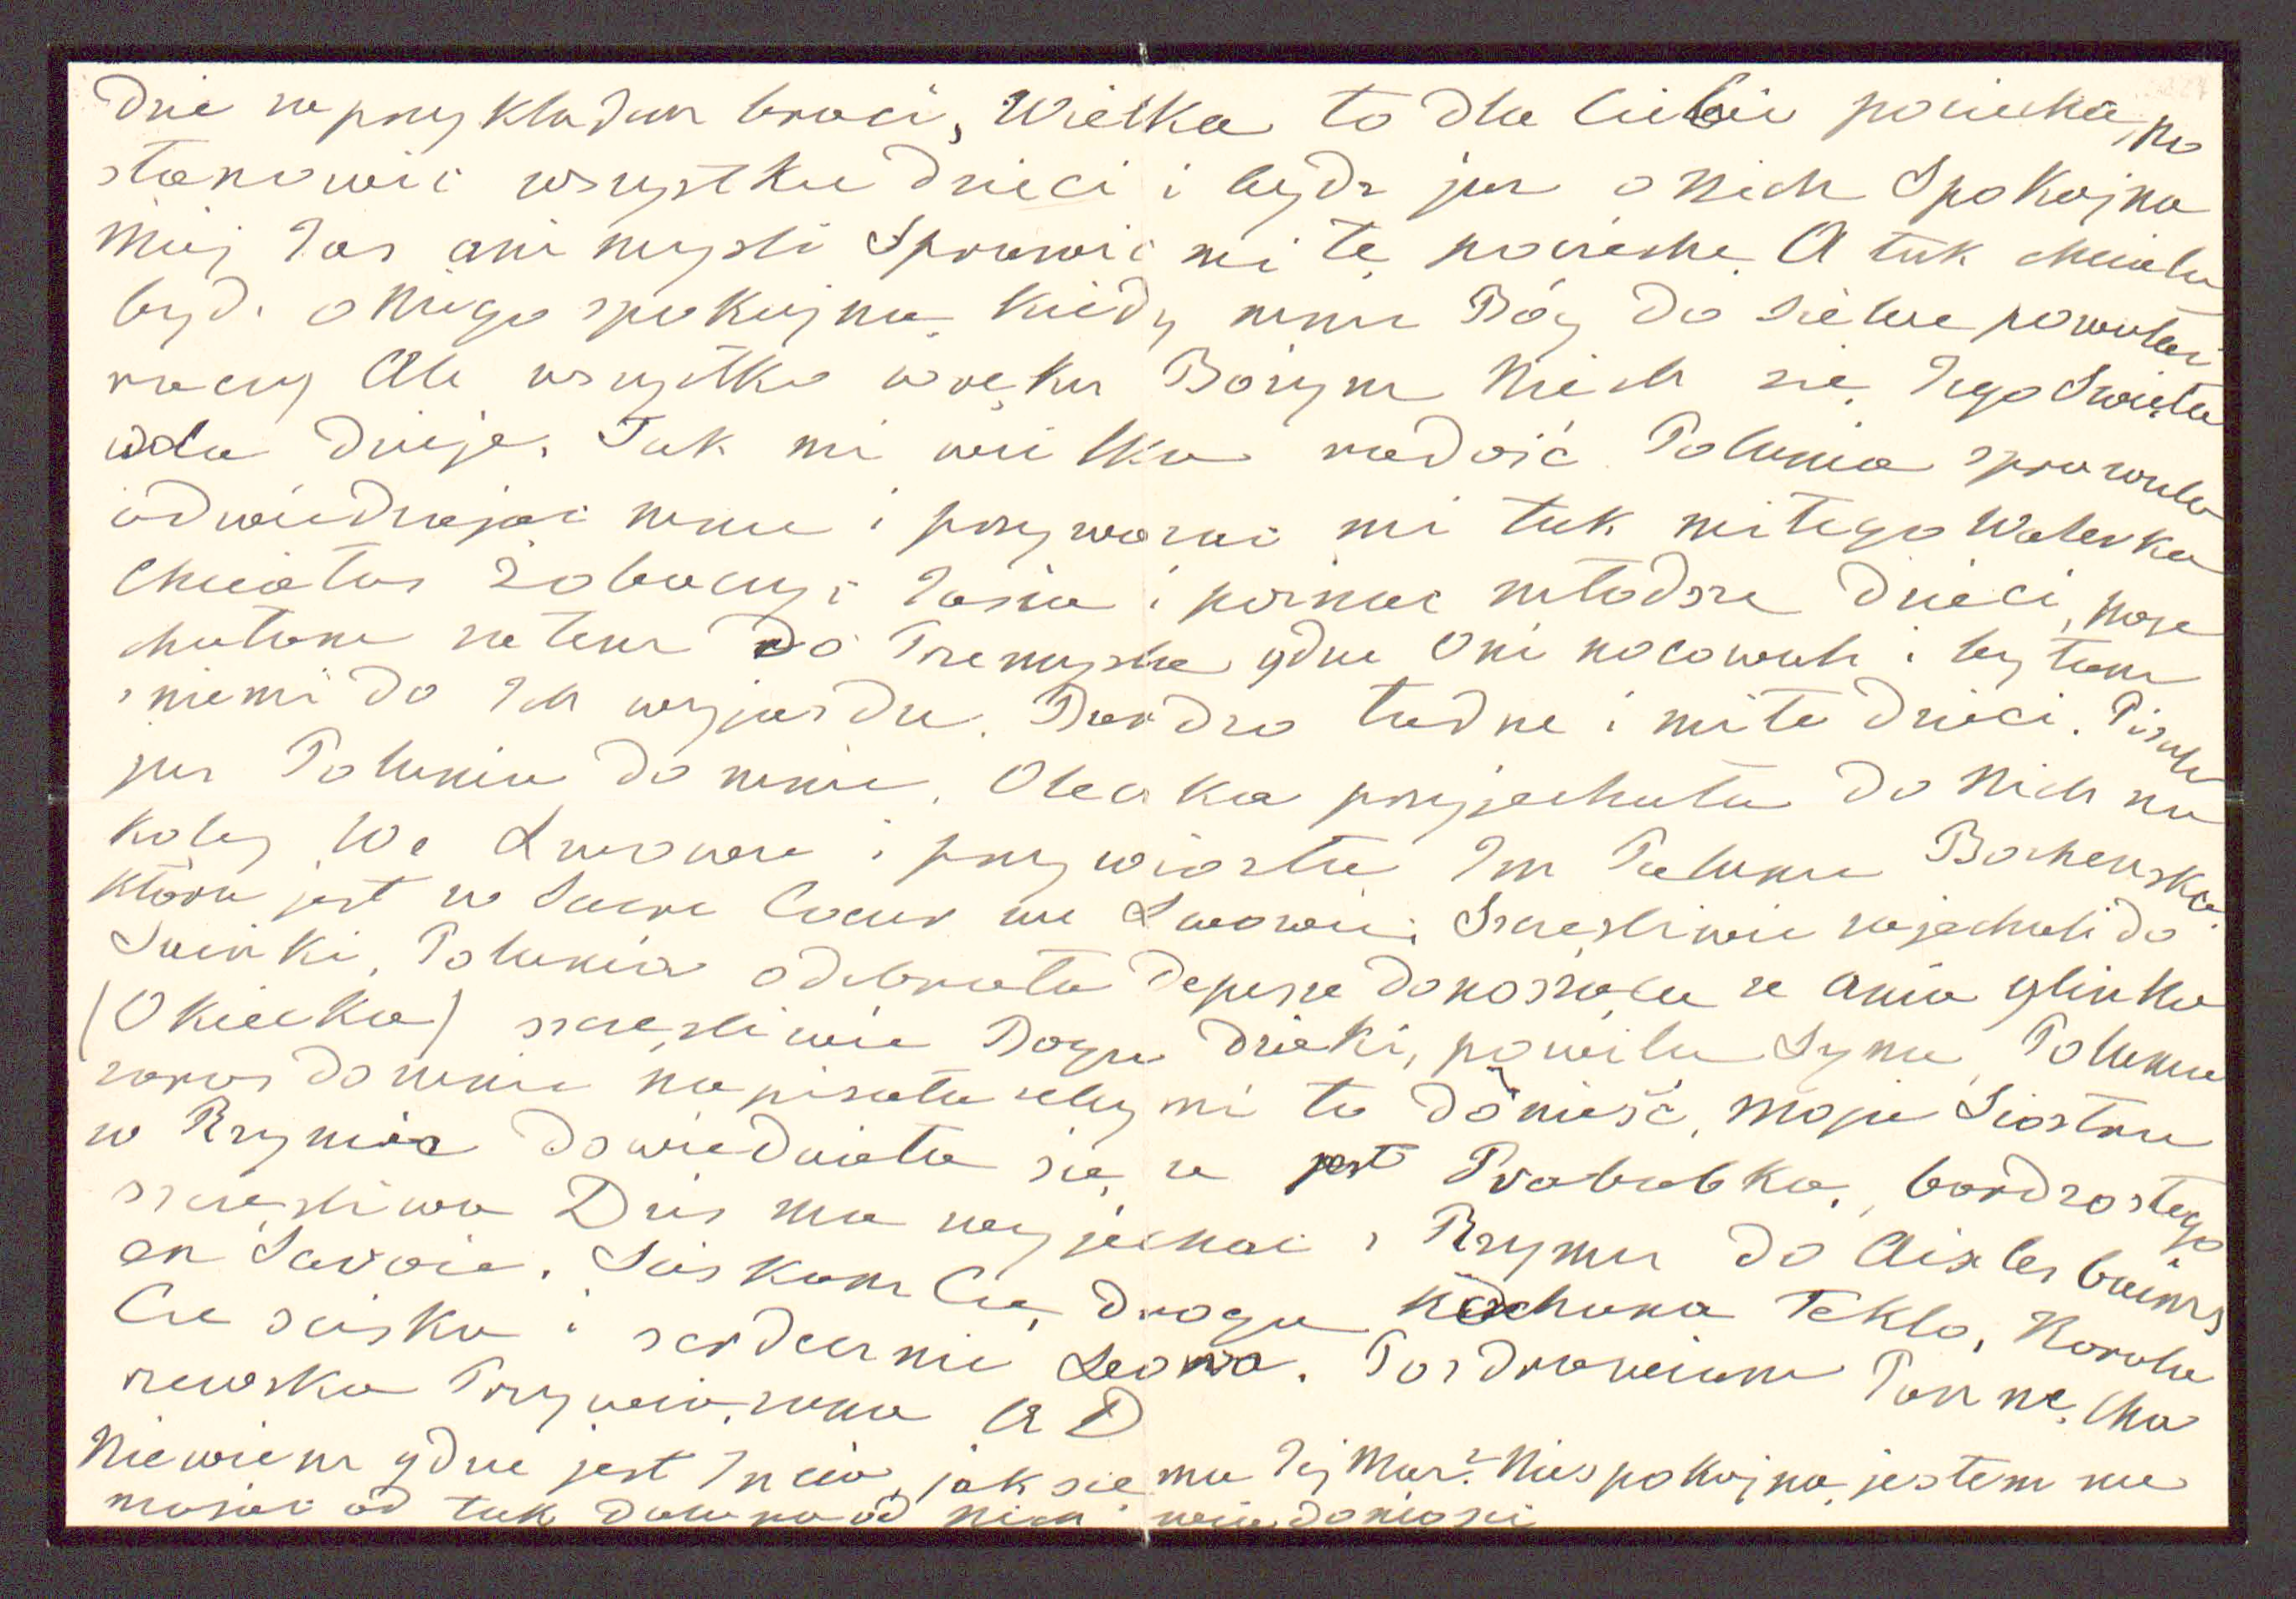 dzie za przykładem braci, Wielka to dla Ciebie pociecha, po
stanowić wszystkie dzieci i bydz juz o Nich Spokojna
Moj Jas ani mysli Sprawić mi tę pociechę. A tak chciała
bydz o Niego spokojna, Kiedy mnie Bóg do siebie powołać
raczy Ale wszystko w ręku Bożym Niech się Jego Święta
wola dzieje. Tak mi wielka radość Polunia sprawiła
odwiedzając mnie i przywożąc mi tak miłego Walerka
Chciałas Zobaczyc Jasia i poznac młodsze dzieci, poje
chałam zatem do Przemysla gdzie Oni nocowali i byłam
z niemi do Ich wyjazdu. Bardzo ładne i miłe dzieci. Pisała
juz Polunia do mnie, Oleska przyjechała do Nich na
Kolej We Lwowie i przywiozła Im Polunię Bochenską
która jest w Sacre Coeur we Lwowie. Szczęsliwie zajechali do
Swirki, Polunia odebrała depeszę donosząca ze Ania Glinka
(Okiecka) szczęsliwie Bogu dzięki, powiła Syna, Polunia
zaraz do mnie napisała zeby mi to donieść, moja Siostra
w Rzymie dowiedziała się ze jest Prababką, bardzo z tego
szczęsliwa Dzis ma wyjechac z Rzymu do Aix les bains
en Savoie. Sciskam Cię, droga Kochana Teklo, Karola
Cie sciska i serdecznie Leona. Pozdrawiam Pannę Cha
rzewską Przywiązana A D
Niewiem gdzie jest Incia, jak się ma Jej Mąz? Niespokojna jestem nie
mając od tak dawna od Nich wiadomosci